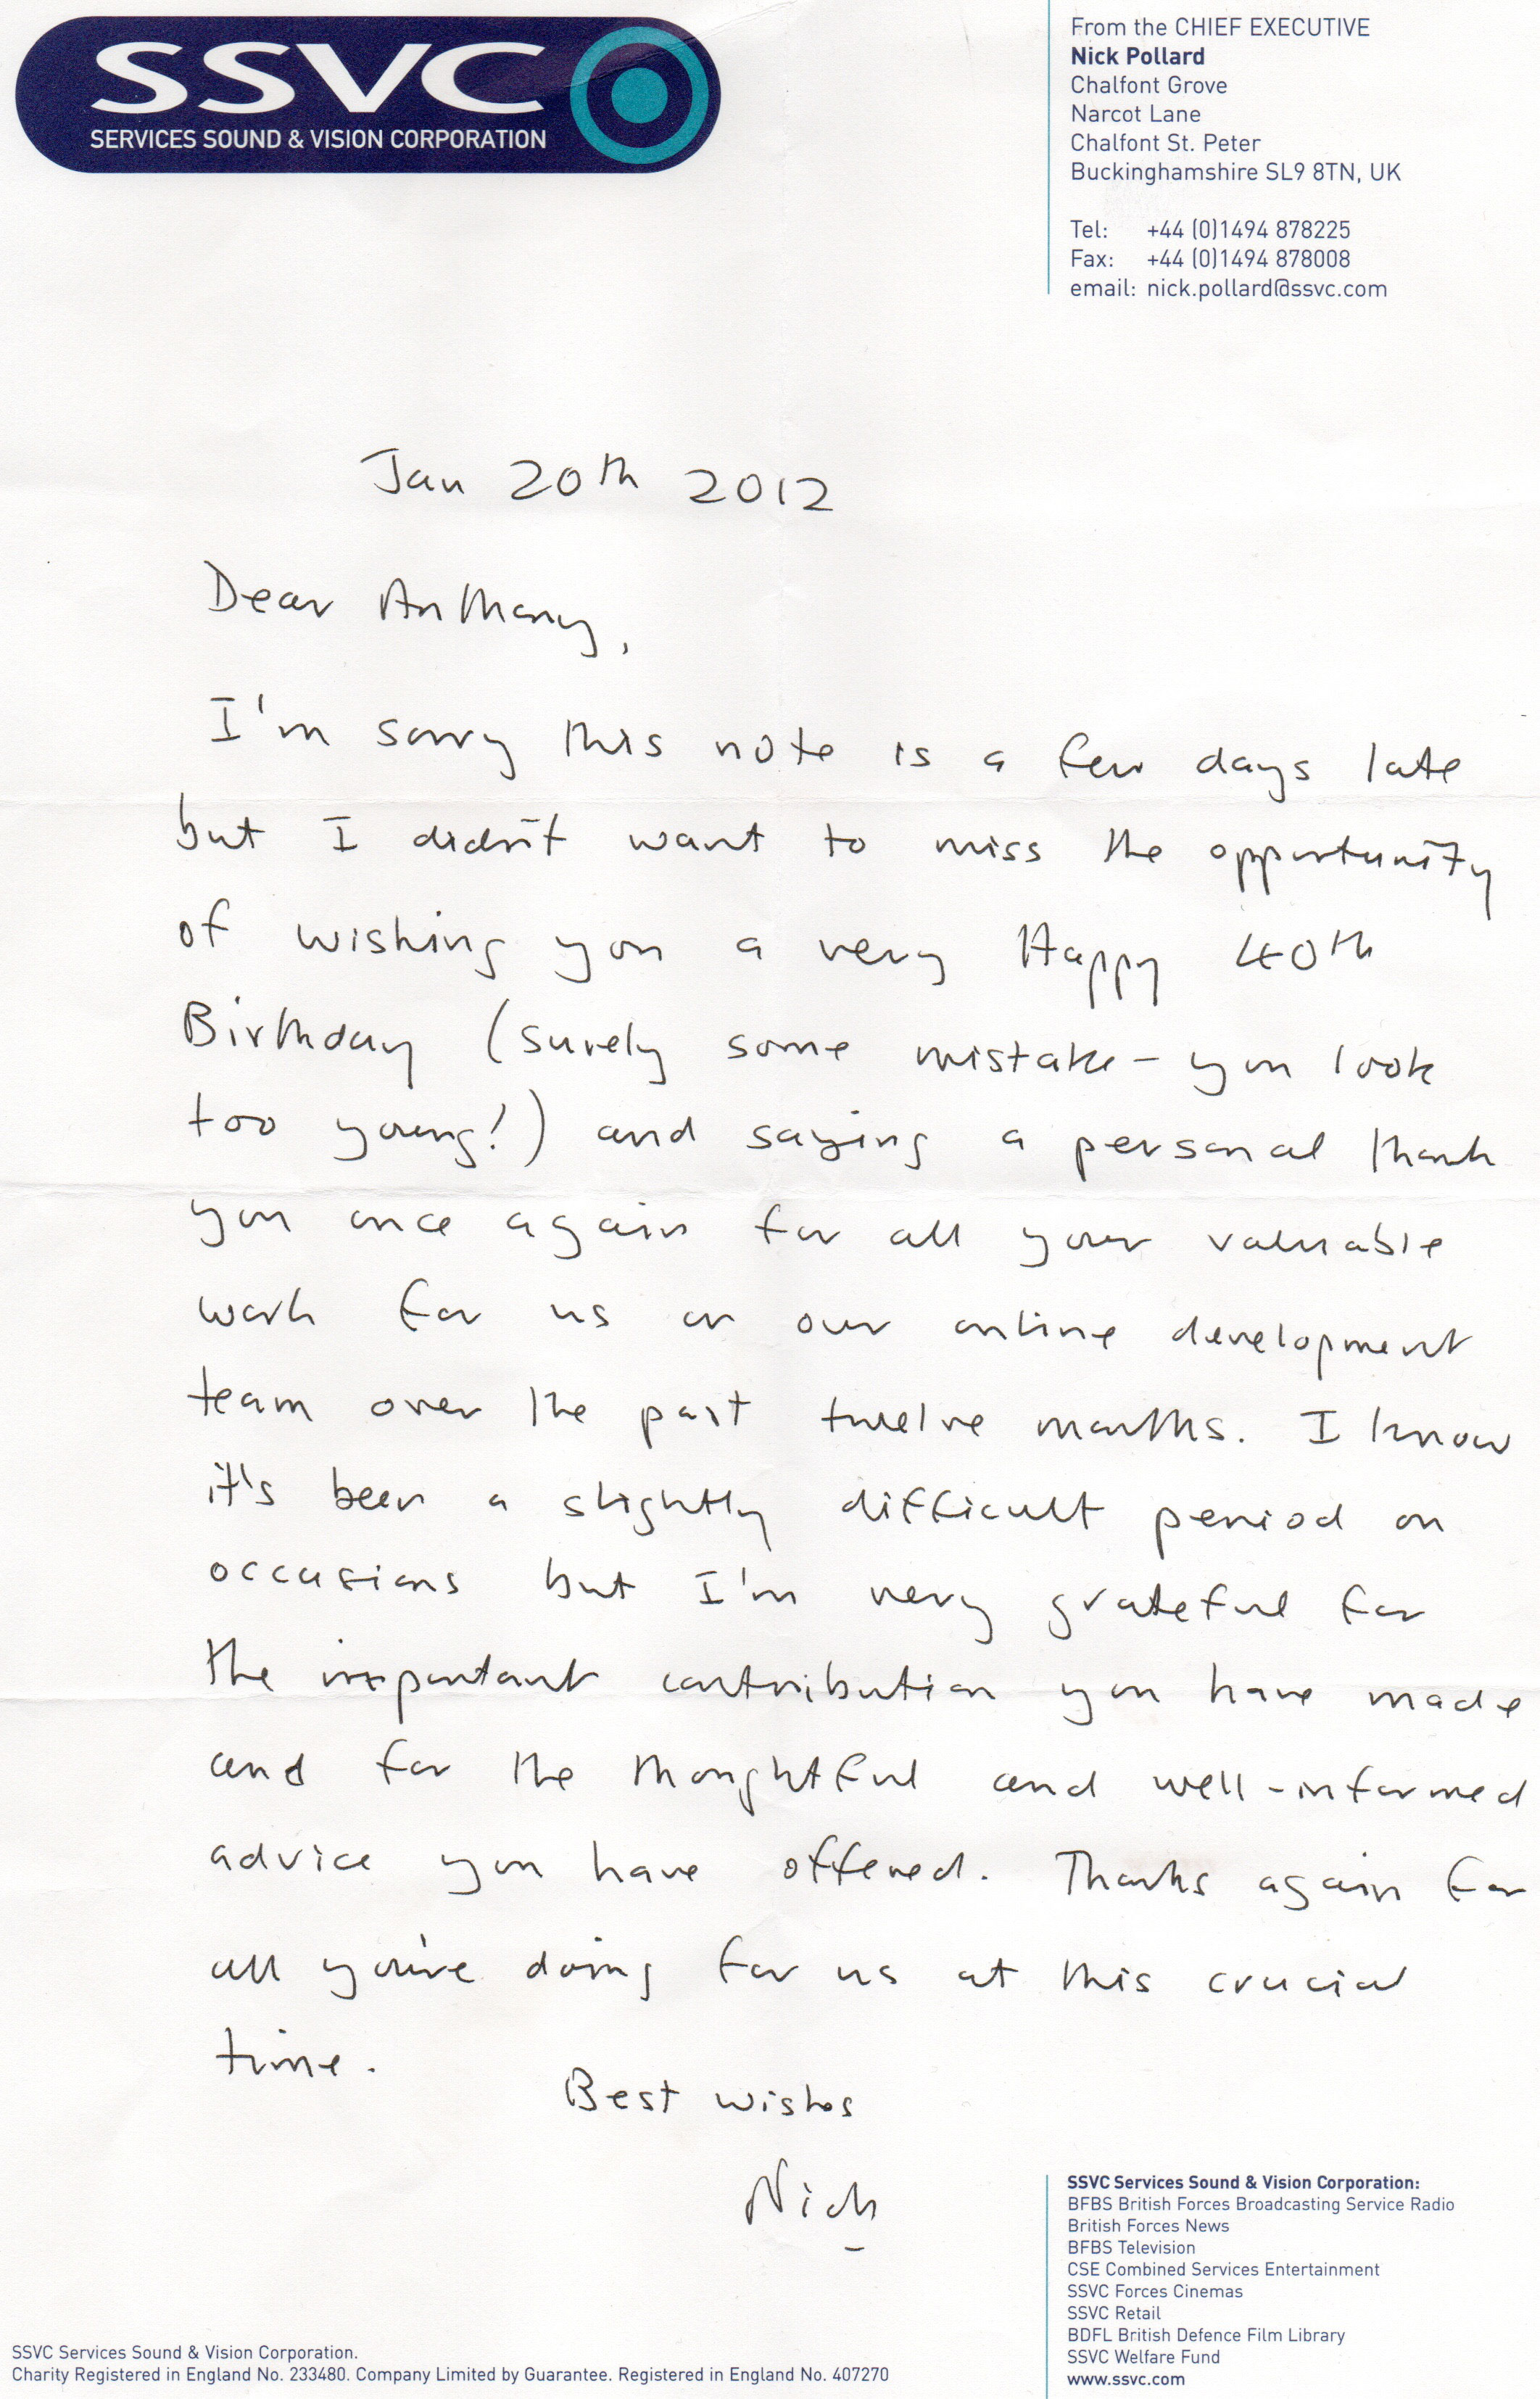 SSVC
SERVICES SOUND & VISION CORPORATION
From the CHIEF EXECUTIVE
Nick Pollard
Chalfont Grove
Narcot Lane
Chalfont St. Peter
Buckinghamshire SL9 8TN, UK
Tel: +44 (0)1494 878225
Fax: +44 (0)1494 878008
email: nick.pollard@ssvc.com
Jan 20th 2012
Dear Anthony,
I'm sorry this note is a few days late
but I didn't want to miss the opportunity
of wishing you a very Happy 40th
Birthday (surely some mistake - you look
too young!) and saying a personal thank
you once again for all your valuable
work for us on our online development
team over the past twelve months. I know
it's been a slightly difficult period on
occasions but I'm very grateful for
the important contribution you have made
and for the thoughtful and well-informed
advice you have offered. Thanks again for
all you're doing for us at this crucial
time.
Best wishes
Nick
SSVC Services Sound & Vision Corporation:
BFBS British Forces Broadcasting Service Radio
British Forces News
BFBS Television
CSE Combined Services Entertainment
SSVC Forces Cinemas
SSVC Retail
BDFL British Defence Film Library
SSVC Welfare Fund
www.ssvc.com
SSVC Services Sound & Vision Corporation.
Charity Registered in England No. 233480. Company Limited by Guarantee. Registered in England No. 407270